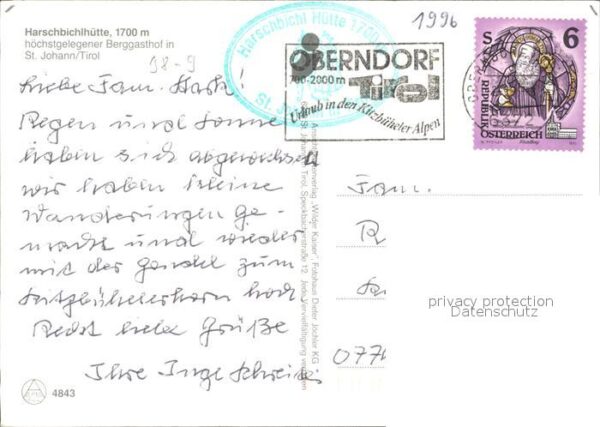 Harschbichlhütte, 1700 m
höchstgelegener Berggasthof in
St. Johann/Tirol
98-9
1996
Harschbichl Hütte 1700
St. Jo
OBERNDORF
700-2000 m Tirol
Urlaub in den Kitzbüheler Alpen
S 6
REPUBLIK
ÖSTERREICH
Liebe Fam.
Regen und Sonne
haben sich abgewechselt
wir haben kleine
Wanderungen ge-
macht und wieder
mit der Gondel zum
Kitzbühelerhorn hoch
Recht liebe Grüße
Ihre Inge Schwei
Ansichtskartenverlag „Wilder Kaiser", Fotohaus Dieter Jöchler KG
St. Johann in Tirol, Speckbacherstraße 12 Jede Vervielfältigung verboten
Fam.
R
077
privacy protection
Datenschutz
4843